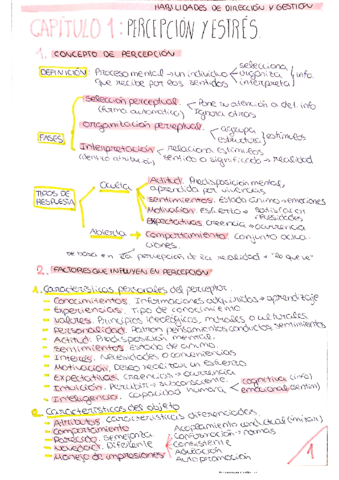 HABILIDADES DE DIRECCIÓN Y GESTIÓN
CAPÍTULO 1: PERCEPCIÓN Y ESTRÉS.
1. CONCEPTO DE PERCEPCIÓN
DEFINICIÓN Proceso mental → un individuo selecciona organiza interpreta info.
que recibe por los sentidos
FASES
Selección perceptual. → Pone su atención a det. info
(forma automática) Ignora otros
Organización perceptual. agrupa estructura estímulos
Interpretación → relaciona estímulos
(dentro atribución) sentido o significado → realidad
TIPOS DE RESPUESTA
Oculta
Actitud. Predisposición mental,
aprendida por vivencias
Sentimientos. Estado ánimo → emociones
Motivación. Esfuerzo → satisfacer necesidades
Expectativas creencia → ocurrencia
Abierta → Comportamiento. conjunto
ciones.
se basa en la percepción de la realidad → "lo que ve"
2. FACTORES QUE INFLUYEN EN PERCEPCIÓN
1. Características personales del perceptor.
- Conocimientos. Informaciones adquiridas → aprendizaje
- Experiencias. Tipo de conocimiento
- Valores. Principios ideológicos, morales o culturales
- Personalidad. Patrón pensamientos conductas sentimientos
- Actitud. Predisposición mental.
- Sentimientos. Estado de ánimo
- Interés. Necesidades o conveniencias
- Motivación. Deseo realizar un esfuerzo
- Expectativas. Creencias → ocurrencia
- Intuición. Percibir → subconsciente.
- Inteligencia. capacidad humana cognitiva (info)
emocional (sentim)
2. Características del objeto
- Atributos. características diferenciadas.
- Comportamiento
- Parecido. Semejanza
- Novedad. Diferente
- Manejo de impresiones
Acoplamiento conductual (imitar)
Conformación → normas
Consistente
Adulación
Auto promoción
1